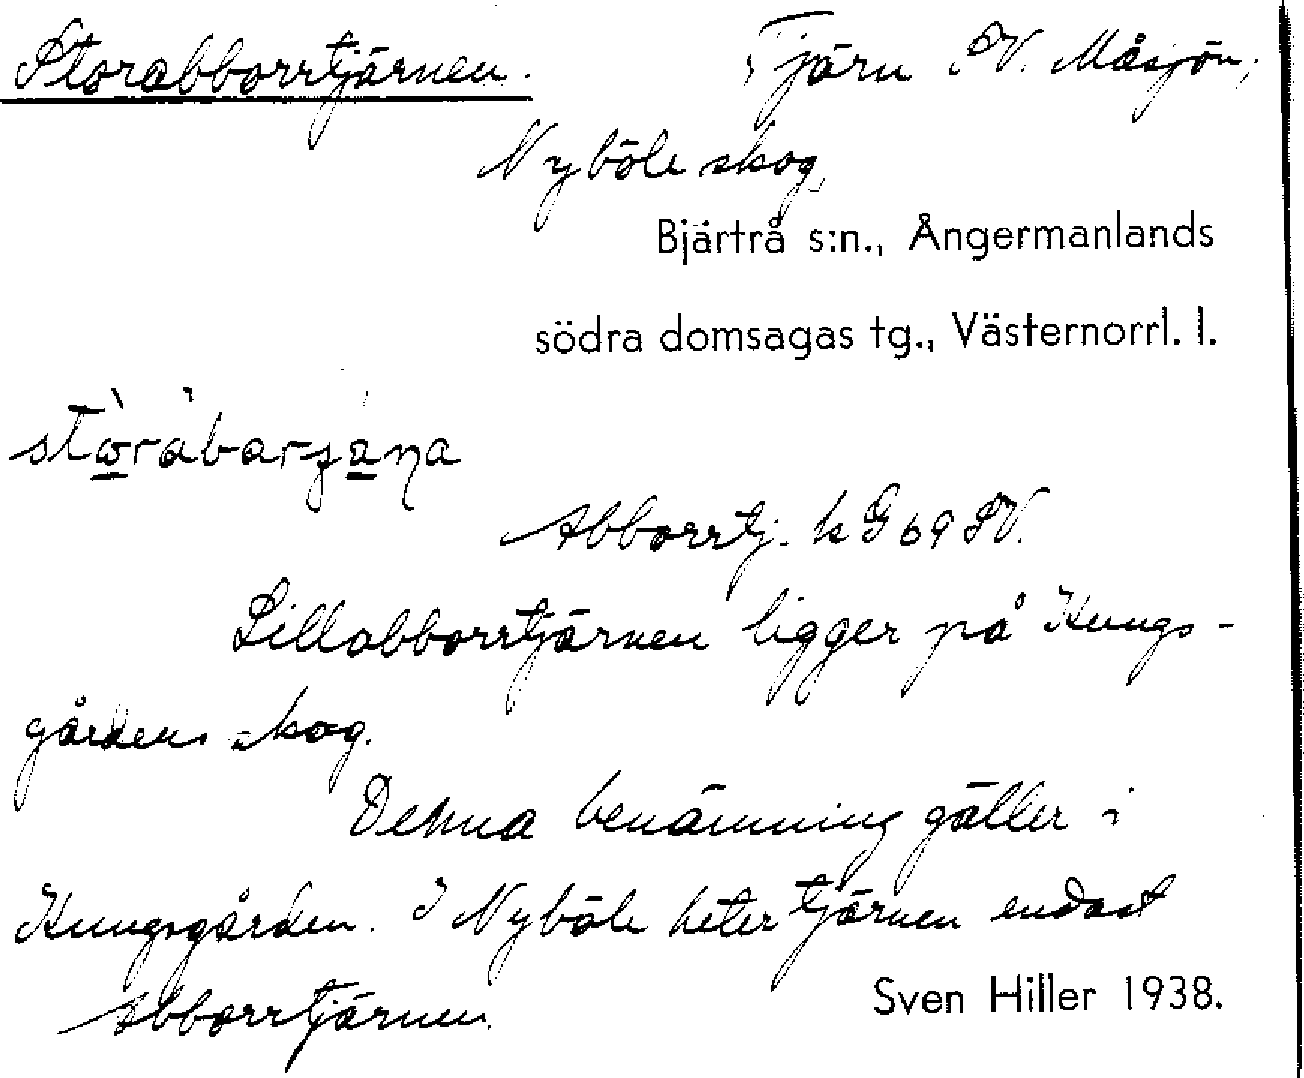 Storabborrtjärnen. Tjärn SV. Måsjön,
Nyböle skog,
Bjärtrå s:n., Ångermanlands
södra domsagas tg., Västernorrl. l.
Abborrtj. k G 69 SV.
Lillabborrtjärnen ligger på Kungs-
gårdens skog.
Denna benämning gäller i
Kungsgården. I Nyböle heter tjärnen endast
Abborrtjärnen.
Sven Hiller 1938.